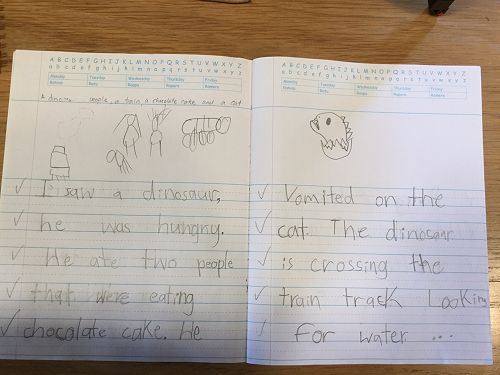 A B C D E F G H I J K L M N O P Q R S T U V W X Y Z
a b c d e f g h i j k l m n o p q r s t u v w x y z
Monday Tuesday Wednesday Thursday Friday
people, a train, a chocolate cake and a cat
I saw a dinosaur,
he was hungry.
He ate two people
that were eating
chocolate cake. He
A B C D E F G H I J K L M N O P Q R S T U V W X Y Z
a b c d e f g h i j k l m n o p q r s t u v w x y z
Monday Tuesday Wednesday Thursday Friday
Vomited on the
cat. The dinosaur
is crossing the
train track Looking
for water ...